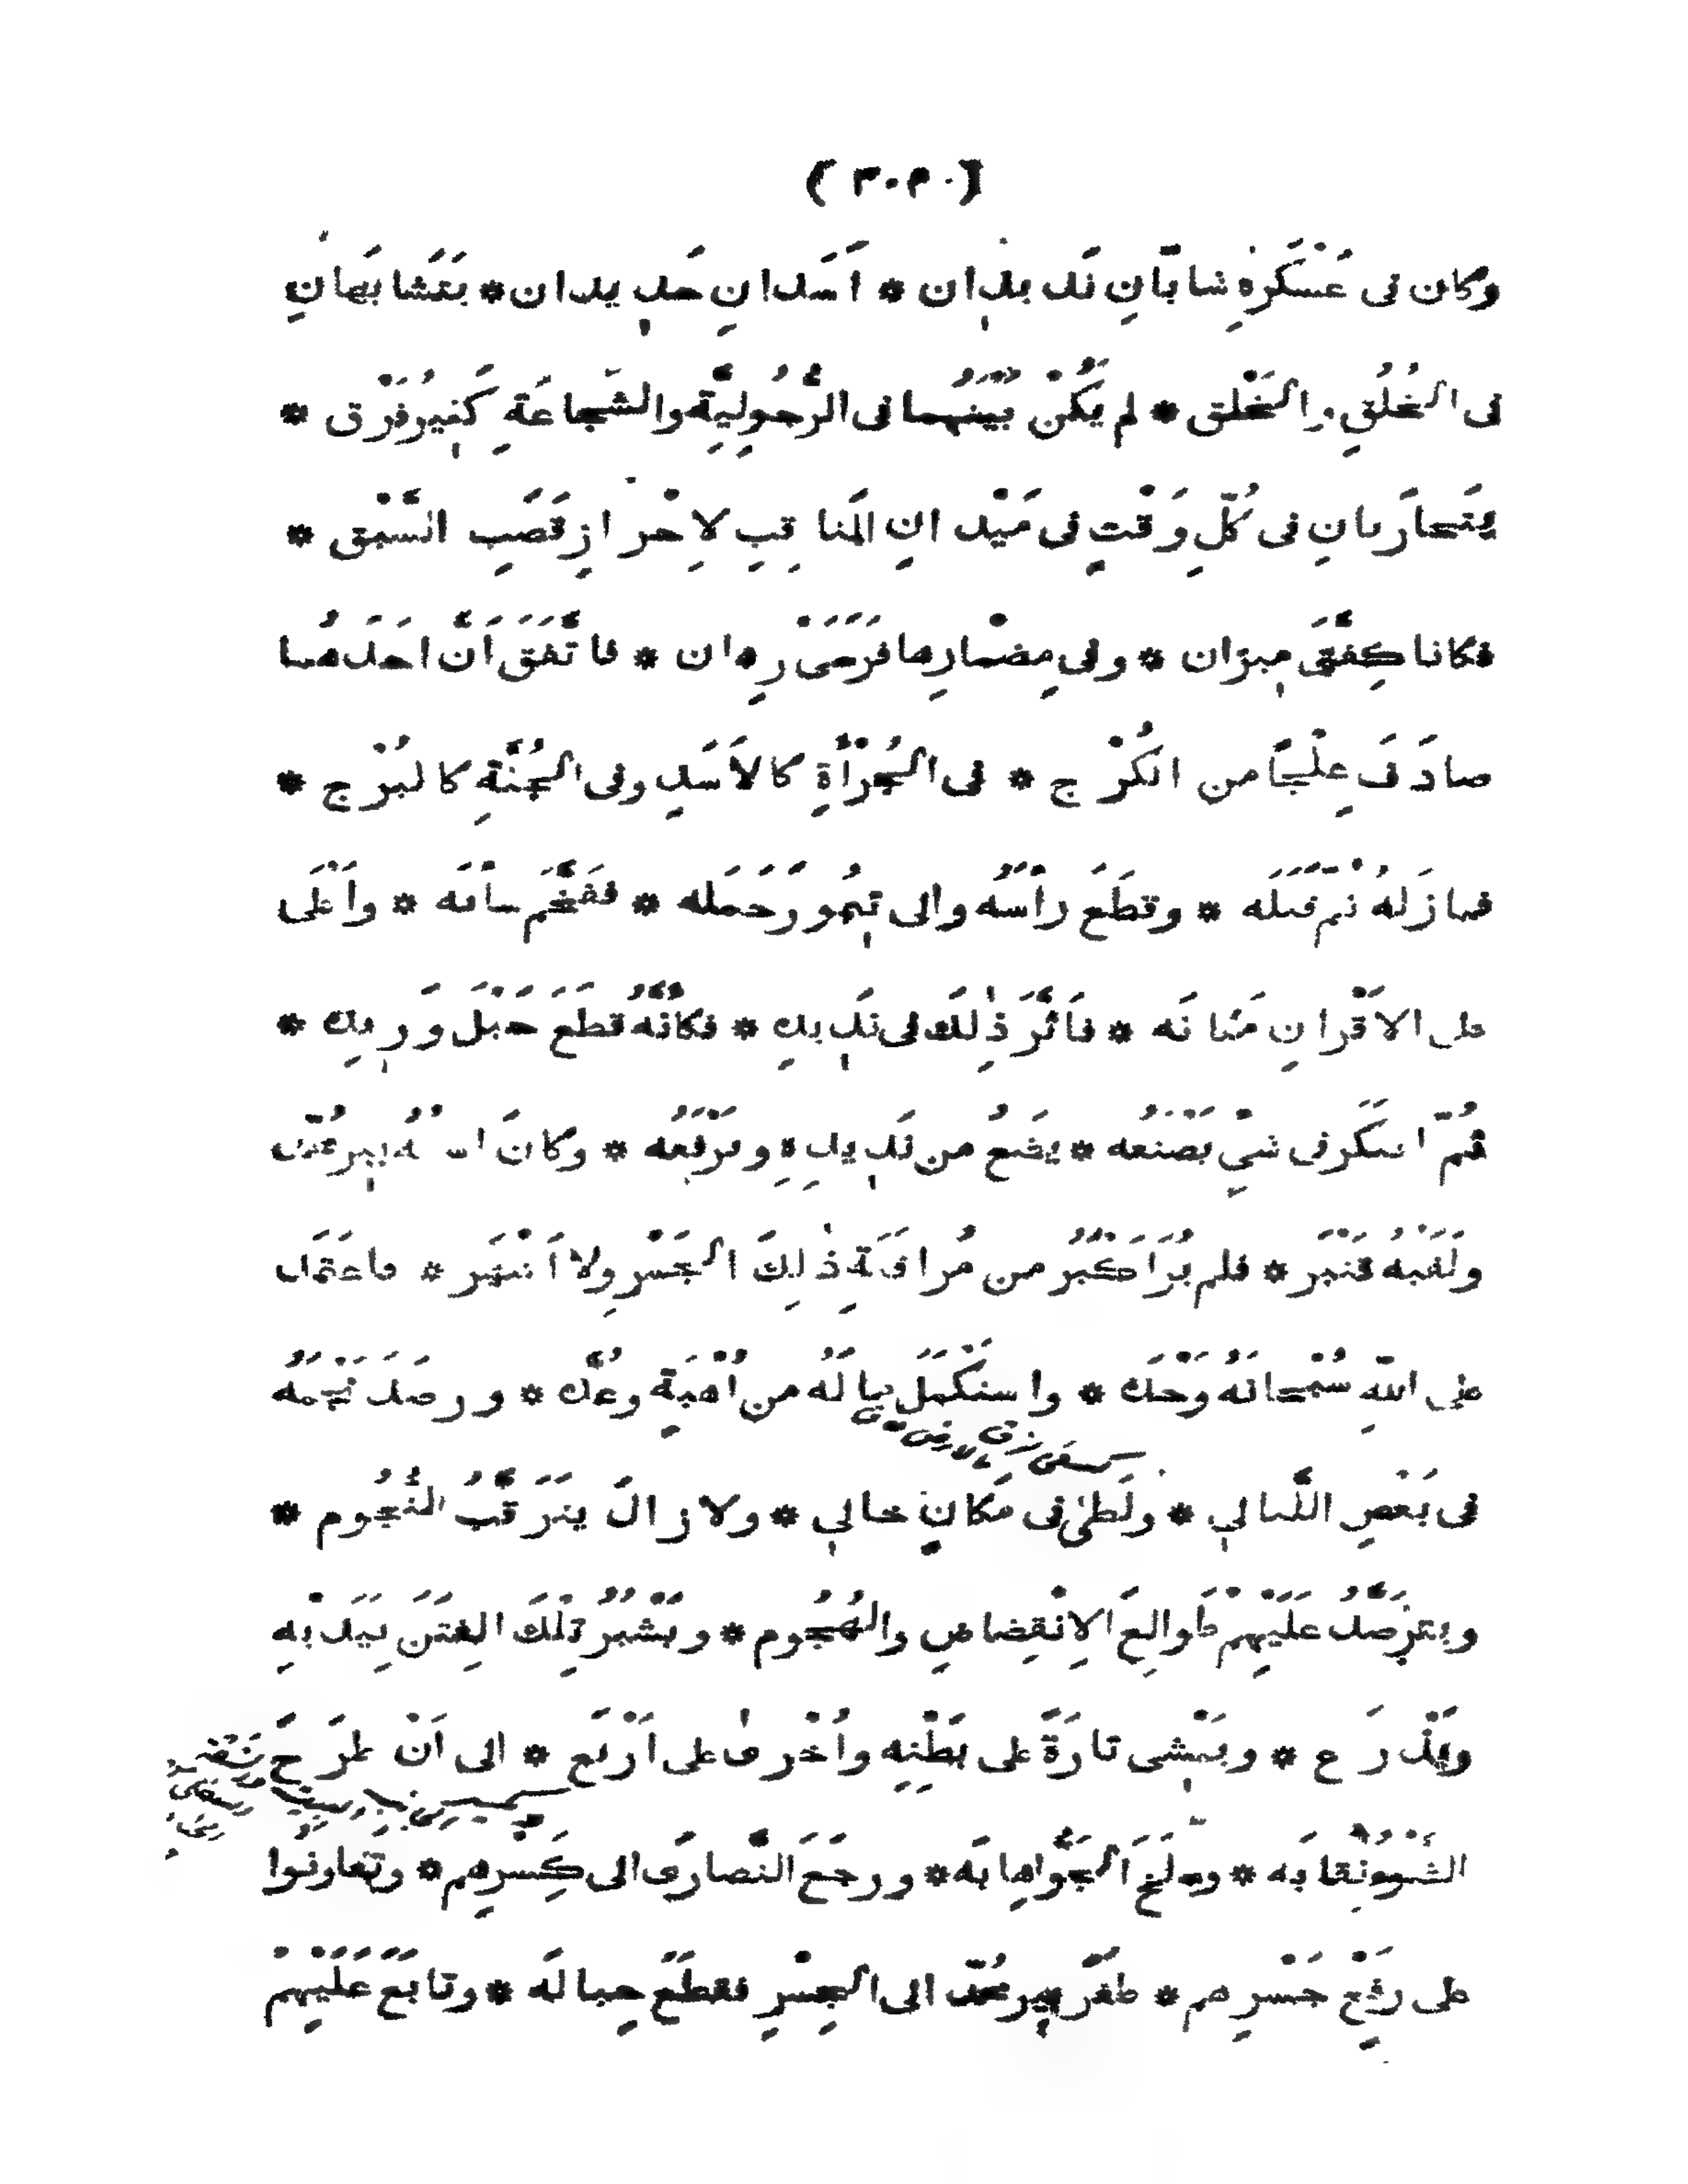 ( ٣٠٩ )
وكان فى عَسْكَرِهِ شابّانِ نَدِيدان * اَسَدانِ حَدِيدان * يَتَشابَهانِ
فى الخُلُقِ والخَلْق * لم يَكُنْ بَيْنَهُما فى الرُّجُولِيَّةِ والشَّجاعَةِ كَثِيرُ فَرْق *
يَتَجارَيانِ فى كُلِّ وَقْتٍ فى مَيْدانِ المَناقِبِ لاِحْرازِ قَصَبِ السَّبْق *
فكانا كِفَّتَى مِيزان * وفى مِضْمارِها فَرَسَىْ رِهان * فاتَّفَقَ اَنَّ احَدَهُما
صادَفَ عِلْجًا من الكُرْج * فى الجُرْأةِ كالاَسَدِ وفى الجُنَّةِ كالبُرْج *
فنازَلهُ ثم قَتَلَه * وقطَعَ رأسَهُ والى تِيمُورَ حَمَله * ففَخَّمَ شأنَه * واَعْلَى
على الاَقْرانِ مَكانَه * فاَثَّرَ ذٰلِكَ فى نَدِيدِهِ * فكانَّهُ قطَعَ حَبْلَ وَرِيدِه *
ثُمَّ افتكر فى شىْءٍ يَصْنَعُه * يضَعُ من نَدِيدِهِ ويَرْفَعُه * وكانَ اسْمُهُ بِيرمُحَمَّد
ولَقَبُهُ قَنْبَر * فلم يَرَ اَكْبَرَ من مُراقَبَةِ ذٰلِكَ الجَسْرِ ولا اَشْهَر * فاعتَمَدَ
على اللهِ سُبْحانَهُ وَحْدَه * واستَكْمَلَ مالَهُ من اُهْبَةٍ وعُدَّه * ورصَدَ نَجْمَهُ
فى بَعْضِ اللَّيالِى * ولَطِئَ فى مَكانٍ خالِى * ولا زالَ يتَرَقَّبُ النُّجُوم *
ويتَرَصَّدُ عَلَيْهِمْ طَوالِعَ الاِنْقِضاضِ والهُجُوم * ويَشْبُرُ تِلْكَ الفِتَنَ بِيَدَيْهِ
ويَذْرَع * ويَمْشِى تارَةً على بَطْنِهِ واُخْرىٰ على اَرْبَع * الى اَنْ طَرَحَ
الضَّوْءُ نِقابَه * وسلَخَ الجَوُّ اهابَه * ورجَعَ النَّصارَى الى كَسْرِهِم * وتَعاونُوا
على رَفْعِ جَسْرِهِم * طفَرَ بِيرمُحَمَّد الى الجِسْرِ فقطَعَ حِبالَه * وتابَعَ عَلَيْهِمْ